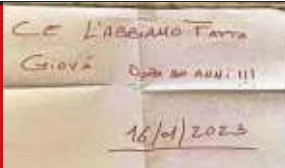 CE L'ABBIAMO FATTA
GIOVÀ
DOPO 30 ANNI !!!
16/01/2023